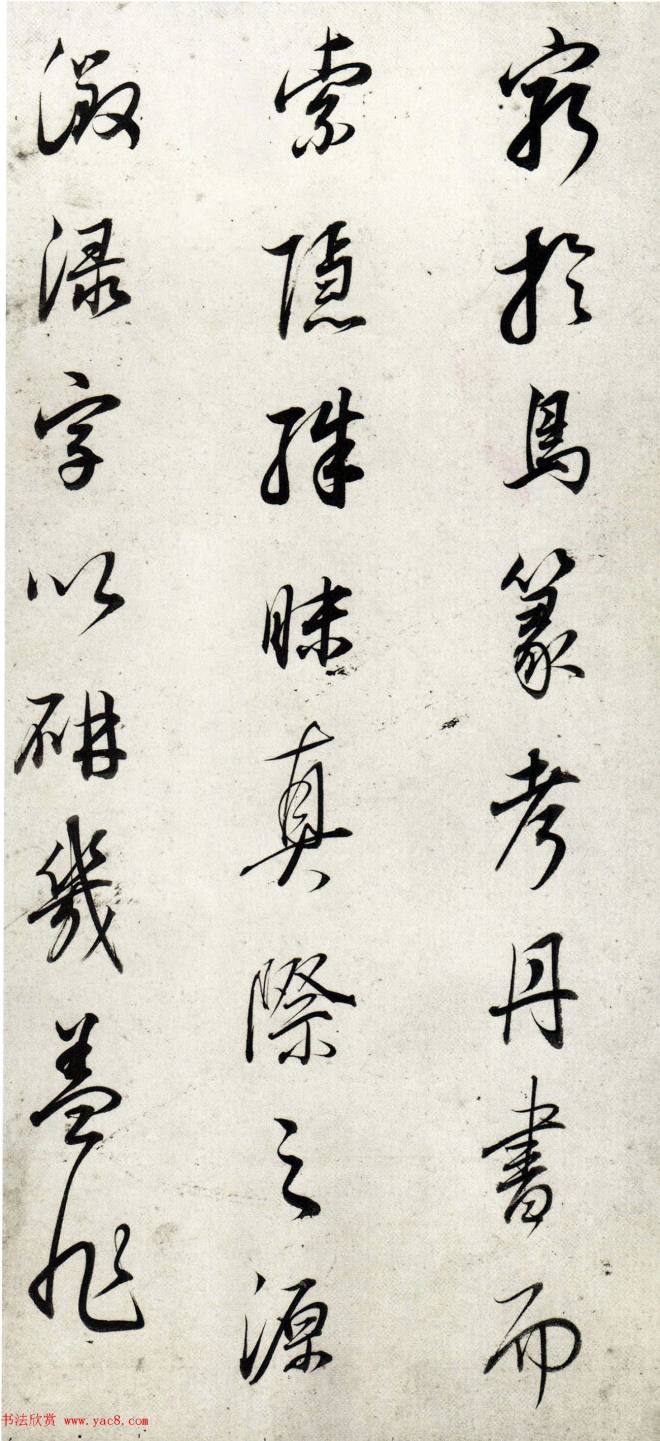 窮於鳥篆考丹書而
索隱殊昧真際之源
徵淥字以研幾蓋非
书法欣赏 www.yac8.com